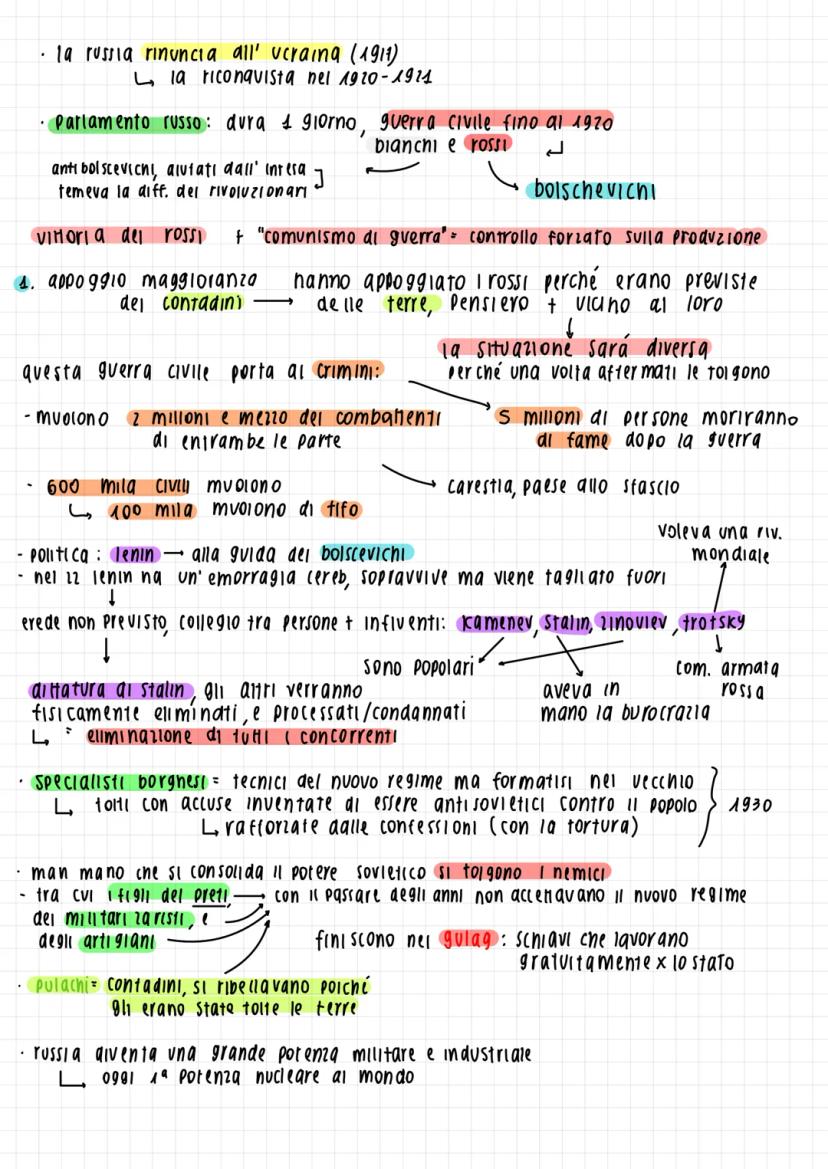 · la russia rinuncia all' ucraina (1917)
↳ la riconquista nel 1920-1921
· Parlamento russo: dura 1 giorno, guerra civile fino al 1920
bianchi e rossi ↵
antibolscevichi, aiutati dall' intesa
temeva la diff. dei rivoluzionari
bolschevichi
vittoria dei rossi + "comunismo di guerra" = controllo forzato sulla produzione
1. appoggio maggioranza hanno appoggiato i rossi perché erano previste
dei contadini → delle terre, pensiero + vicino al loro
la situazione sará diversa
questa guerra civile porta ai crimini: perché una volta affermati le tolgono
- muoiono 2 milioni e mezzo dei combattenti 5 milioni di persone moriranno
di entrambe le parte di fame dopo la guerra
- 600 mila civili muoiono carestia, paese allo sfascio
↳ 100 mila muoiono di tifo
voleva una riv.
mondiale
- politica: lenin → alla guida dei bolscevichi
- nel 22 lenin ha un' emorragia cereb, sopravvive ma viene tagliato fuori
erede non previsto, collegio tra persone + influenti: Kamenev, Stalin, Zinoviev, trotsky
sono popolari com. armata
rossa
dittatura di Stalin, gli altri verranno aveva in
fisicamente eliminati, e processati/condannati mano la burocrazia
↳ = eliminazione di tutti i concorrenti
· specialisti borghesi = tecnici del nuovo regime ma formatisi nel vecchio
↳ tolti con accuse inventate di essere antisovietici contro il popolo } 1930
↳ rafforzate dalle confessioni (con la tortura)
· man mano che si consolida il potere sovietico si tolgono i nemici
- tra cui i figli dei preti, → con il passare degli anni non accettavano il nuovo regime
dei militari zaristi, e
degli artigiani finiscono nei gulag: schiavi che lavorano
gratuitamente x lo stato
· pulachi = contadini, si ribellavano poiché
gli erano state tolte le terre
· russia diventa una grande potenza militare e industriale
↳ oggi 1ª potenza nucleare al mondo